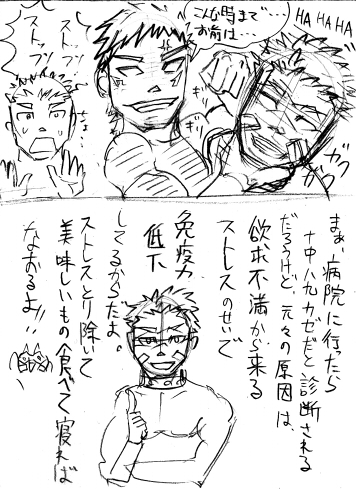 HA HA HA
こんな時まで…
お前は…
ストップ!
ストップ!
まぁ、病院に行ったら
十中八九カゼだと診断される
だろうけど、元々の原因は、
欲求不満から来る
ストレスのせいで
免疫力
低下
してるからだよ。
ストレスとり除いて
美味しいもの食べて寝れば
なおるよ!!